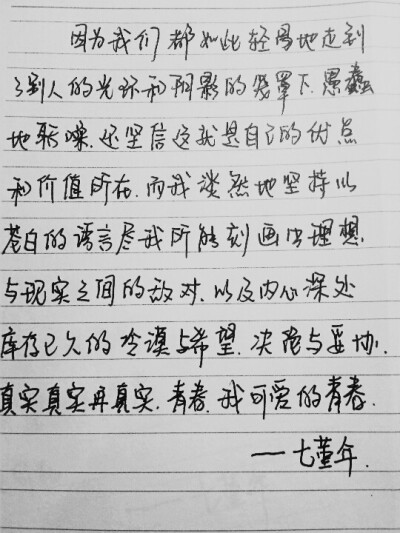 因为我们都如此轻易地走到
了别人的光环和阴影的笼罩下.愚蠢
地聒噪.还坚信这就是自己的优点
和价值所在.而我淡然地坚持以
苍白的语言尽我所能刻画出理想.
与现实之间的敌对.以及内心深处
库存已久的冷漠与希望.决绝与妥协.
真实真实再真实.青春.我可爱的青春.
——七堇年.